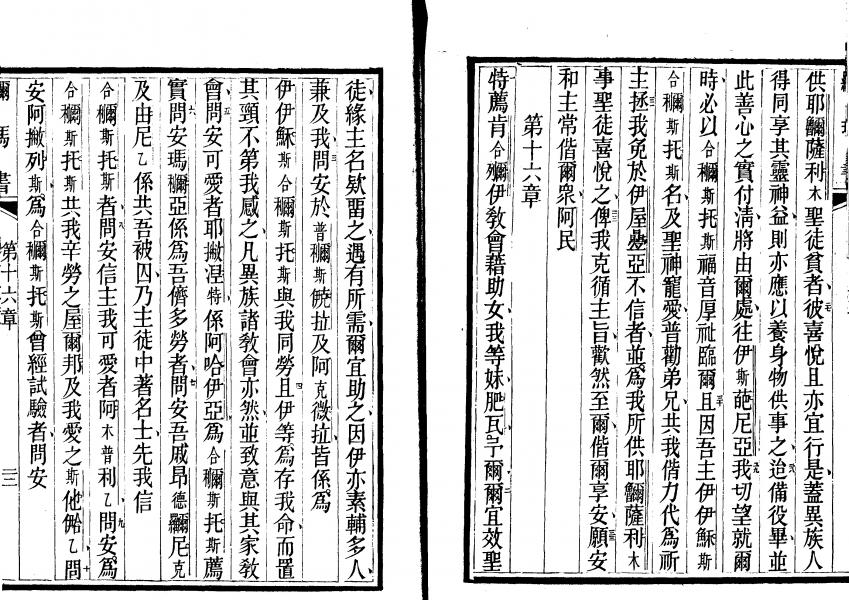 供耶𬴊薩利木聖徒貧者彼喜悅且亦宜行是蓋異族人
得同享其靈神益則亦應以養身物供事之迨備役畢並
此善心之實付淸將由爾處往伊斯葩尼亞我切望就爾
時必以合穪斯托斯福音厚祉臨爾且因吾主伊伊穌斯
合穪斯托斯名及聖神寵愛普勸弟兄共我偕力代爲祈
主拯我免於伊屋疊亞不信者並爲我所供耶𬴊薩利木
事聖徒喜悅之俾我克循主旨歡然至爾偕爾享安願安
和主常偕爾衆阿民
第十六章
特薦肯合殢伊敎會藉助女我等妹肥瓦爾爾宜效聖
徒緣主名欵畱之遇有所需爾宜助之因伊亦素輔多人
兼及我問安於普穪斯饒拉及阿克微拉皆係爲
伊伊穌斯合穪斯托斯與我同勞且伊等爲存我命而置
其頸不第我感之凡異族諸敎會亦然並致意與其家敎
會問安可愛者耶撇涅特係阿哈伊亞爲合穪斯托斯薦
實問安瑪穪亞係爲吾儕多勞者問安吾戚昂德尼克
及由尼乙係共吾被囚乃主徒中著名士先我信
合穪斯托斯者問安信主我可愛者阿木普利乙問安爲
合穪斯托斯共我辛勞之屋爾邦及我愛之斯他乙問
安阿撇列斯爲合穪斯托斯曾經試驗者問安
瑪書
第十六章
三